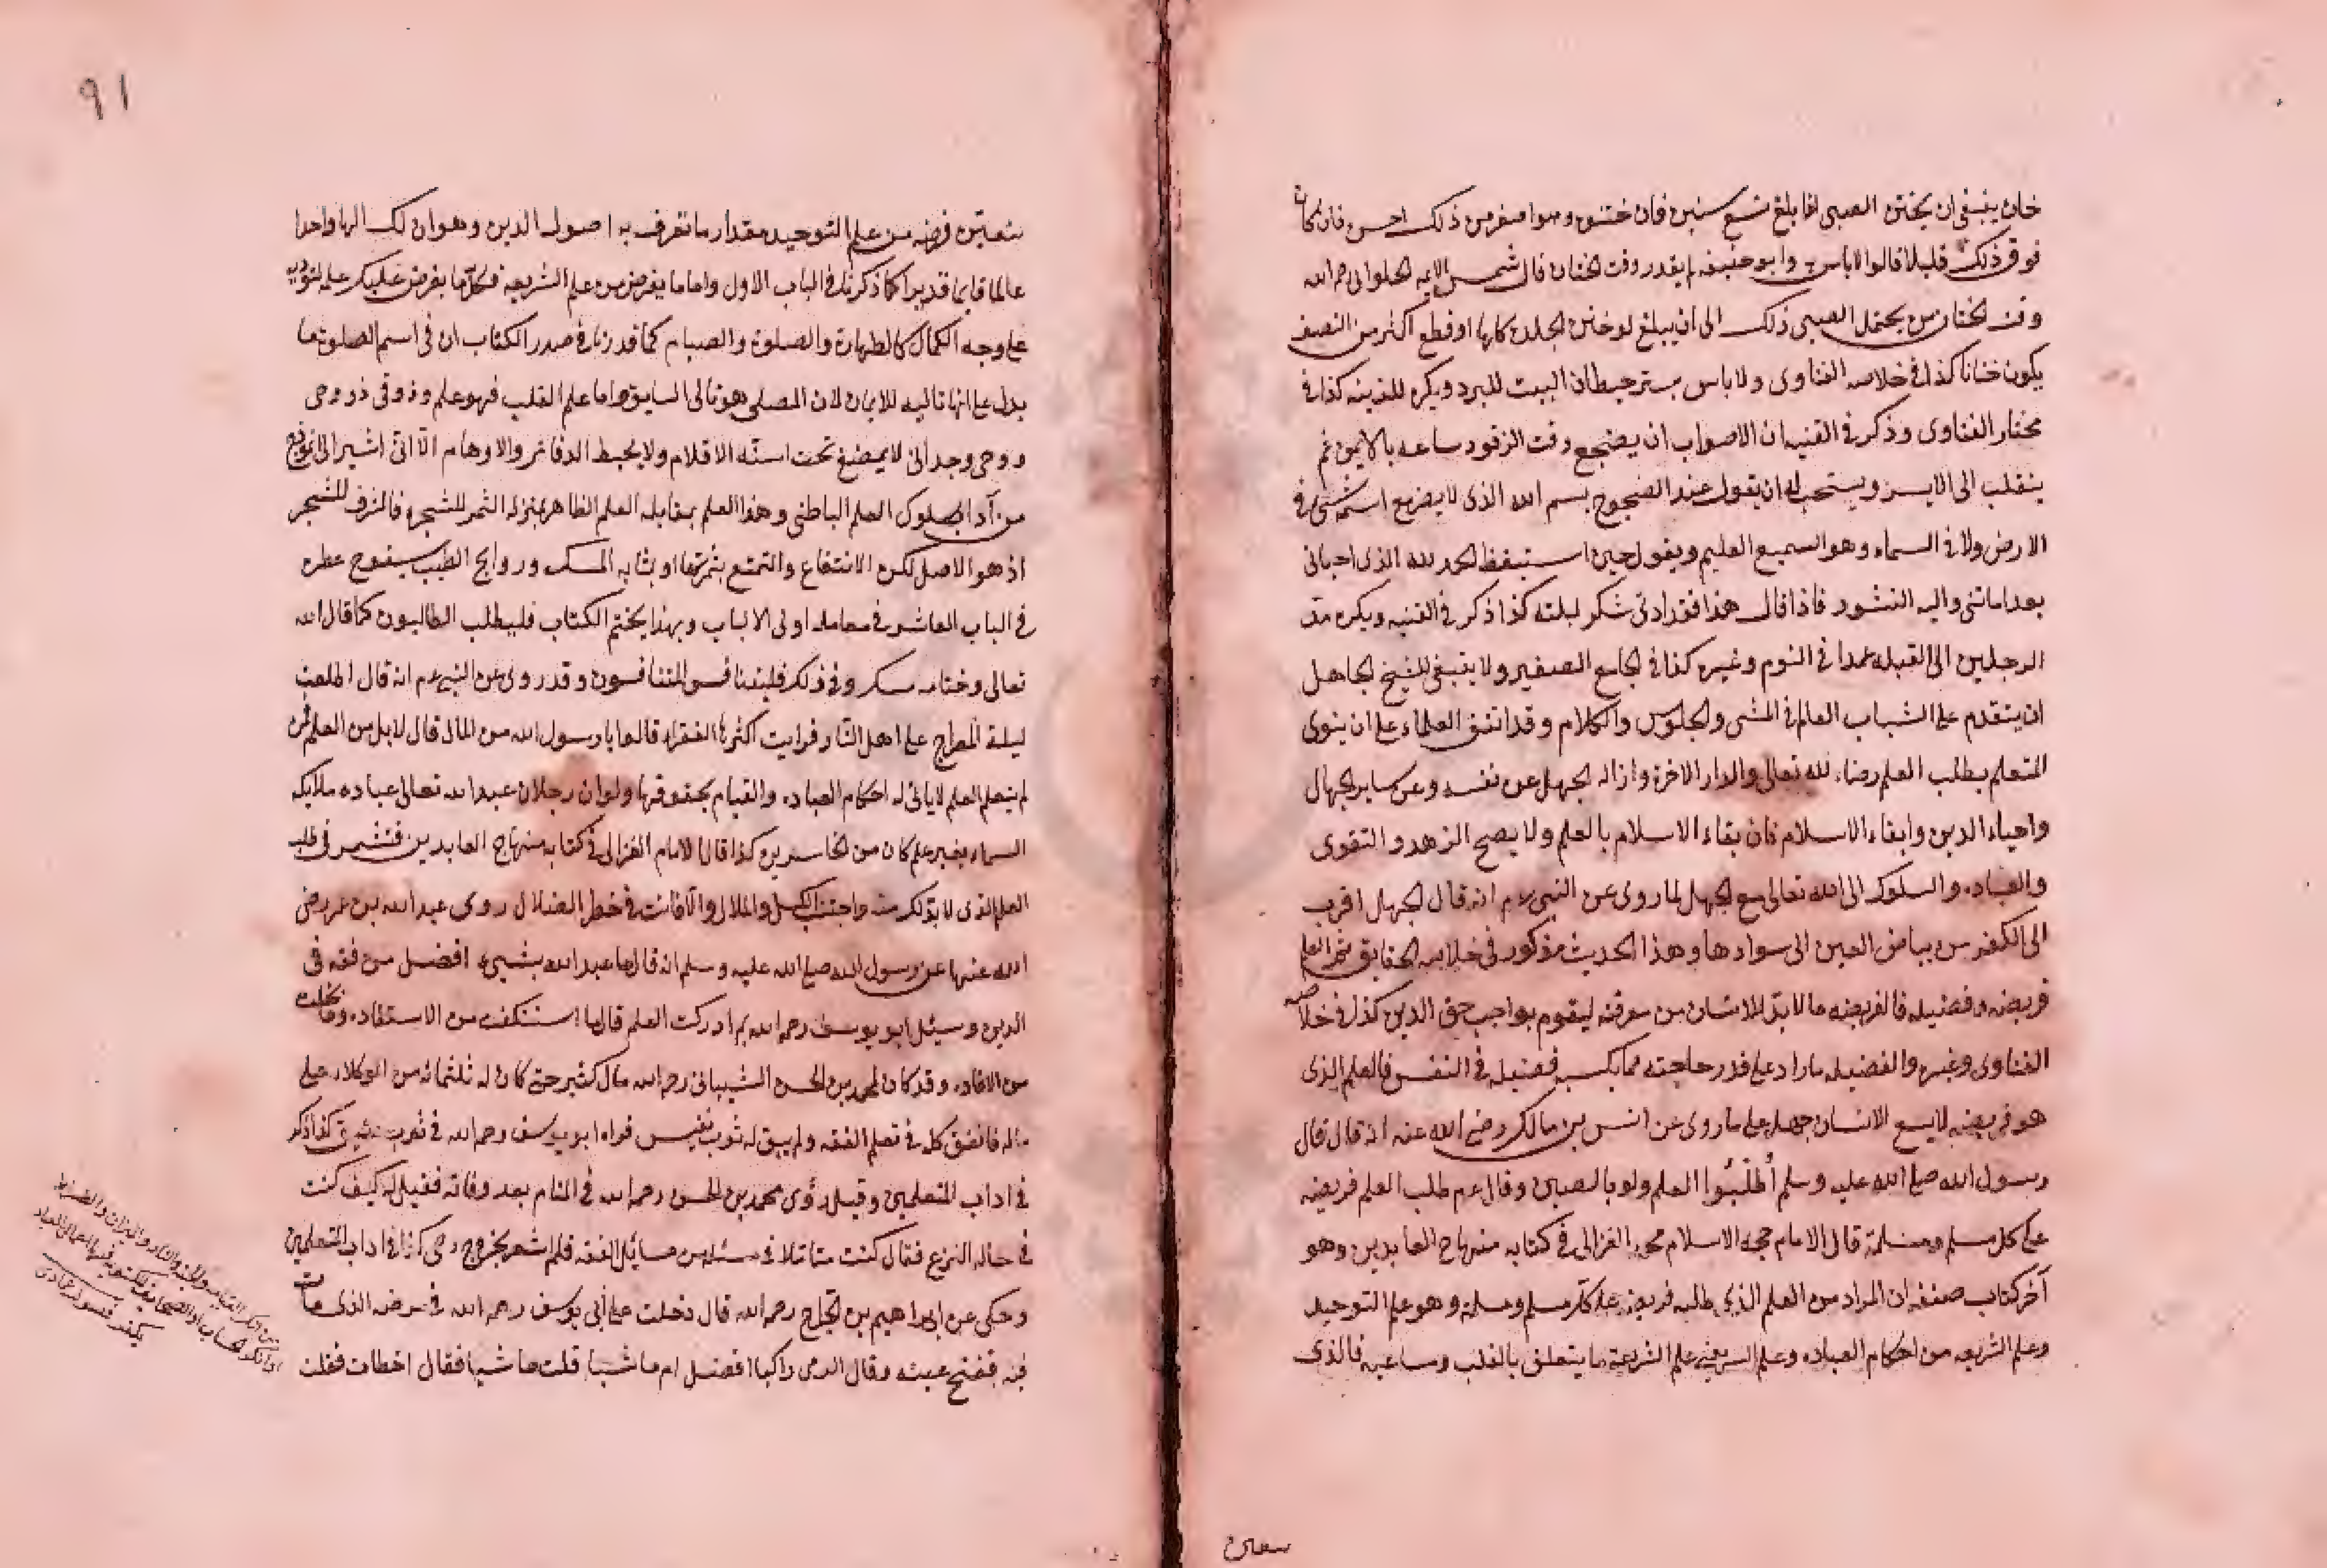 خان ينبغي ان يختن الصبي اذا بلغ تسع سنين فان ختنوه وهو اصغر من ذلك احسن فان كان
فوق ذلك قليلا قالوا لا باس به وابو حنيفه لم يقدر وقت الختان قال شمس الايمه الحلواني رحمه الله
وقت الختان من يحتمل الصبي ذلك الى ان يبلغ لو ختن الجلدة كلها او قطع اكثر من النصف
يكون ختانا كذا في خلاصه الفتاوى ولا باس بستر حيطان البيت للبرد ويكره للزينه كذا في
مختار الفتاوى وذكر في القنيه ان الاصواب ان يضجع وقت الرقود ساعه بالايمن ثم
ينقلب الى الايسر ويستحب له ان يقول عند الضجوع بسم الله الذي لا يضر مع اسمه شئ في
الارض ولا في السماء وهو السميع العليم ويقول حين استيقظ الحمد لله الذي احياني
بعد اماتني واليه النشور فاذا قال هذا فقد ادى شكر ليلته كذا ذكر في القنيه ويكره مد
الرجلين الى القبله عمدا في النوم وغيره كذا في الجامع الصغير ولا ينبغي للشيخ الجاهل
ان يتقدم على الشباب العالم في المشى والجلوس والكلام وقد اتفق العلماء على ان ينوى
المتعلم بطلب العلم رضاء لله تعالى والدار الاخرة وازاله الجهل عن نفسه وعن ساير الجهال
واحياء الدين وابقاء الاسلام فان بقاء الاسلام بالعلم ولا يصح الزهد والتقوى
والعباده والسلوك الى الله تعالى مع الجهل لما روى عن النبي عم انه قال الجهال اقرب
الى الكفر من بياض العين الى سوادها وهذا الحديث مذكور في خلاصه الحقايق ثم العلم
فريضه وفضيله فالفريضه ما لا بد للانسان من معرفته ليقوم بواجب حق الدين كذا في خلاصه
الفتاوى وغيره والفضيله ما زاد على قدر حاجته مما يكسبه فضيله في النفس فالعلم الذي
هو فريضه لا يسع الانسان جهله على ما روى عن انس بن مالك رضي الله عنه انه قال قال
رسول الله صلى الله عليه وسلم أُطْلُبُوا العلم ولو بالصين وقال عم طلب العلم فريضه
على كل مسلم ومسلمة قال الامام حجه الاسلام محمد الغزالى في كتابه منهاج العابدين وهو
آخر كتاب صنفه ان المراد من العلم الذي طلبه فريضه على كل مسلم ومسلمة وهو علم التوحيد
وعلم الشريعه من احكام العباده وعلم السر يعني علم الشريعة ما يتعلق بالقلب ومساعيه فالذي
٩١
يتعين فرضه من علم التوحيد مقدار ما تعرف به اصول الدين وهو ان لك الها واحدا
عالما قايما قديرا كما ذكرناه في الباب الاول واما ما يفرض من علم الشريعه فكل ما يفرض عليك علمه لتؤديه
على وجه الكمال كالطهارة والصلوة والصيام كما قدرناه في صدر الكتاب ان في اسم الصلوة ما
يدل على انها تاليه للايمان لان المصلى هو تالى السابق واما علم القلب فهو علم وذوقى ذو وحى
روحى وجدانى لا يمضغ تحت اسنة الاقلام ولا يحيط الدفاتر والاوهام الا انى اشير الى نموذج
من آداب سلوك العلم الباطنى وهذا العلم بمقابله العلم الظاهر بمنزله الثمر للشجره فالشرف للشجر
اذ هو الاصل لكن الانتفاع والتمتع بثمرتها او بمثابه المسك وروايح الطيب سيفوح عطره
في الباب العاشر في معامله اولى الالباب وبهذا يختم الكتاب فليطلب الطالبون كما قال الله
تعالى وختامه مسك وفي ذلك فليتنافس المتنافسون وقد روى عن النبي عم انه قال اطلعت
ليلة المعراج على اهل النار فرايت اكثرها الفقراء قالوا يا رسول الله من المال قال لا بل من العلم فمن
لم يتعلم العلم لا ياتى له احكام العباده والقيام بحقوقها ولو ان رجلا ن عبد الله تعالى عباده ملايكه
السماء بغير علم كان من الخاسرين كذا قال الامام الغزالى في كتابه منهاج العابدين فتشمر في طلب
العلم الذي لا بد لك منه واجتنب الكسل والملال والا فانت في خطر الضلال روى عبد الله بن عمر رضي
الله عنهما عن رسول الله صلى الله عليه وسلم انه قال ما عبد الله بشيء افضل من فقه في
الدين وسئل ابو يوسف رحمه الله بم ادركت العلم قال ما استنكفت من الاستفاده وما بخلت
من الافاده وقد كان لمحمد بن الحسن الشيبانى رحمه الله مال كثير حتى كان له ثلثمائه من الوكلاء على
ماله فانفق كله في تعلم الفقه ولم يبق له ثوب نفيس فراه ابو يوسف رحمه الله في ثوب عتيق كذا ذكر
في اداب المتعلمين وقيل رؤى محمد بن الحسن رحمه الله في المنام بعد وفاته فقيل له كيف كنت
في حاله النزع فقال كنت متاملا في مسئله من مسائل الفقه فلم اشعر بخروج روحى كذا في اداب المتعلمين
وحكى عن ابراهيم بن الجراح رحمه الله قال دخلت على أبي يوسف رحمه الله في مرضه الذي مات
فيه ففتح عينه وقال الرمى راكبا افضل ام ماشيا قلت ماشيا فقال اخطات فقلت
من انكر القيامة والجنة والنار والميزان والصراط
او انكر الحساب او الصحايف المكتوبة فيها اعمال العباد
يكفر
يتعين